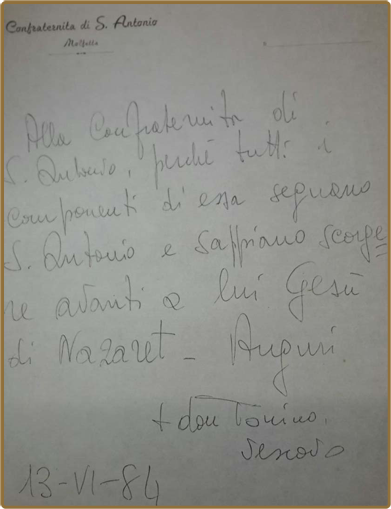 Confraternita di S. Antonio
Molfetta
Alla Confraternita di
S. Antonio, perché tutti i
componenti di essa seguano
S. Antonio e sappiano scorge
re avanti a lui Gesù
di Nazaret - Auguri.
+ don Tonino,
Vescovo
13-VI-84